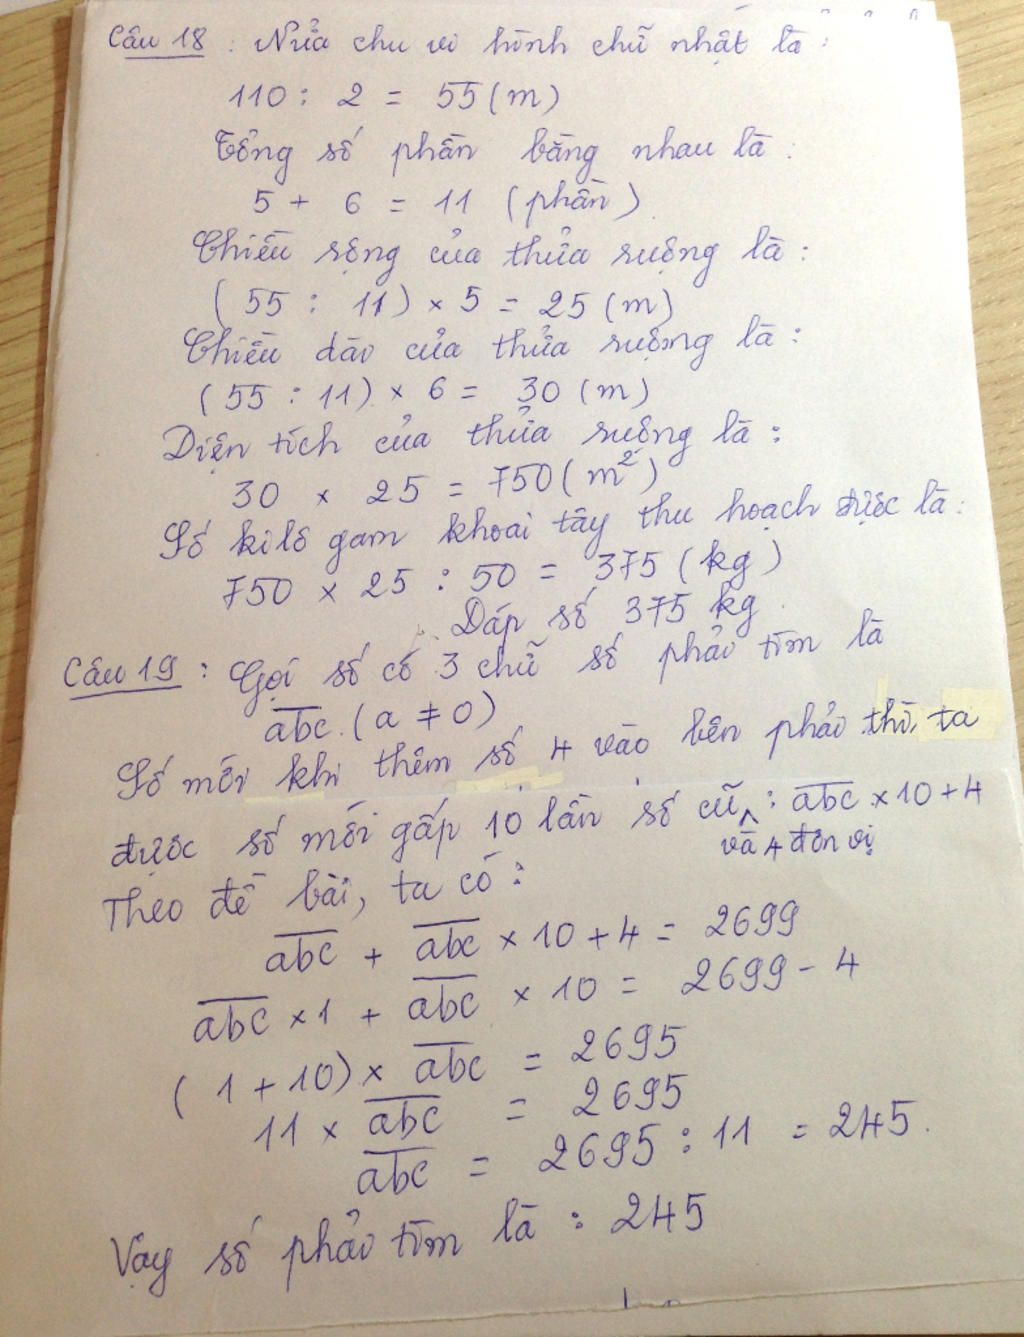 Câu 18 : Nửa chu vi hình chữ nhật là :
110 : 2 = 55 (m)
Tổng số phần bằng nhau là :
5 + 6 = 11 (phần)
Chiều rộng của thửa ruộng là :
( 55 : 11 ) × 5 = 25 (m)
Chiều dài của thửa ruộng là :
(55 : 11) × 6 = 30 (m)
Diện tích của thửa ruộng là :
30 × 25 = 750 ( m²)
Số ki lô gam khoai tây thu hoạch được là :
750 × 25 : 50 = 375 (kg)
Đáp số 375 kg
Câu 19 : Gọi số có 3 chữ số phải tìm là
a̅b̅c̅ (a ≠ 0)
Số mới khi thêm số 4 vào bên phải thì ta
được số mới gấp 10 lần số cũ : a̅b̅c̅ × 10 + 4
và 4 đơn vị
Theo đề bài, ta có :
a̅b̅c̅ + a̅b̅c̅ × 10 + 4 = 2699
a̅b̅c̅ × 1 + a̅b̅c̅ × 10 = 2699 - 4
( 1 + 10) × a̅b̅c̅ = 2695
11 × a̅b̅c̅ = 2695
a̅b̅c̅ = 2695 : 11 = 245.
Vậy số phải tìm là : 245